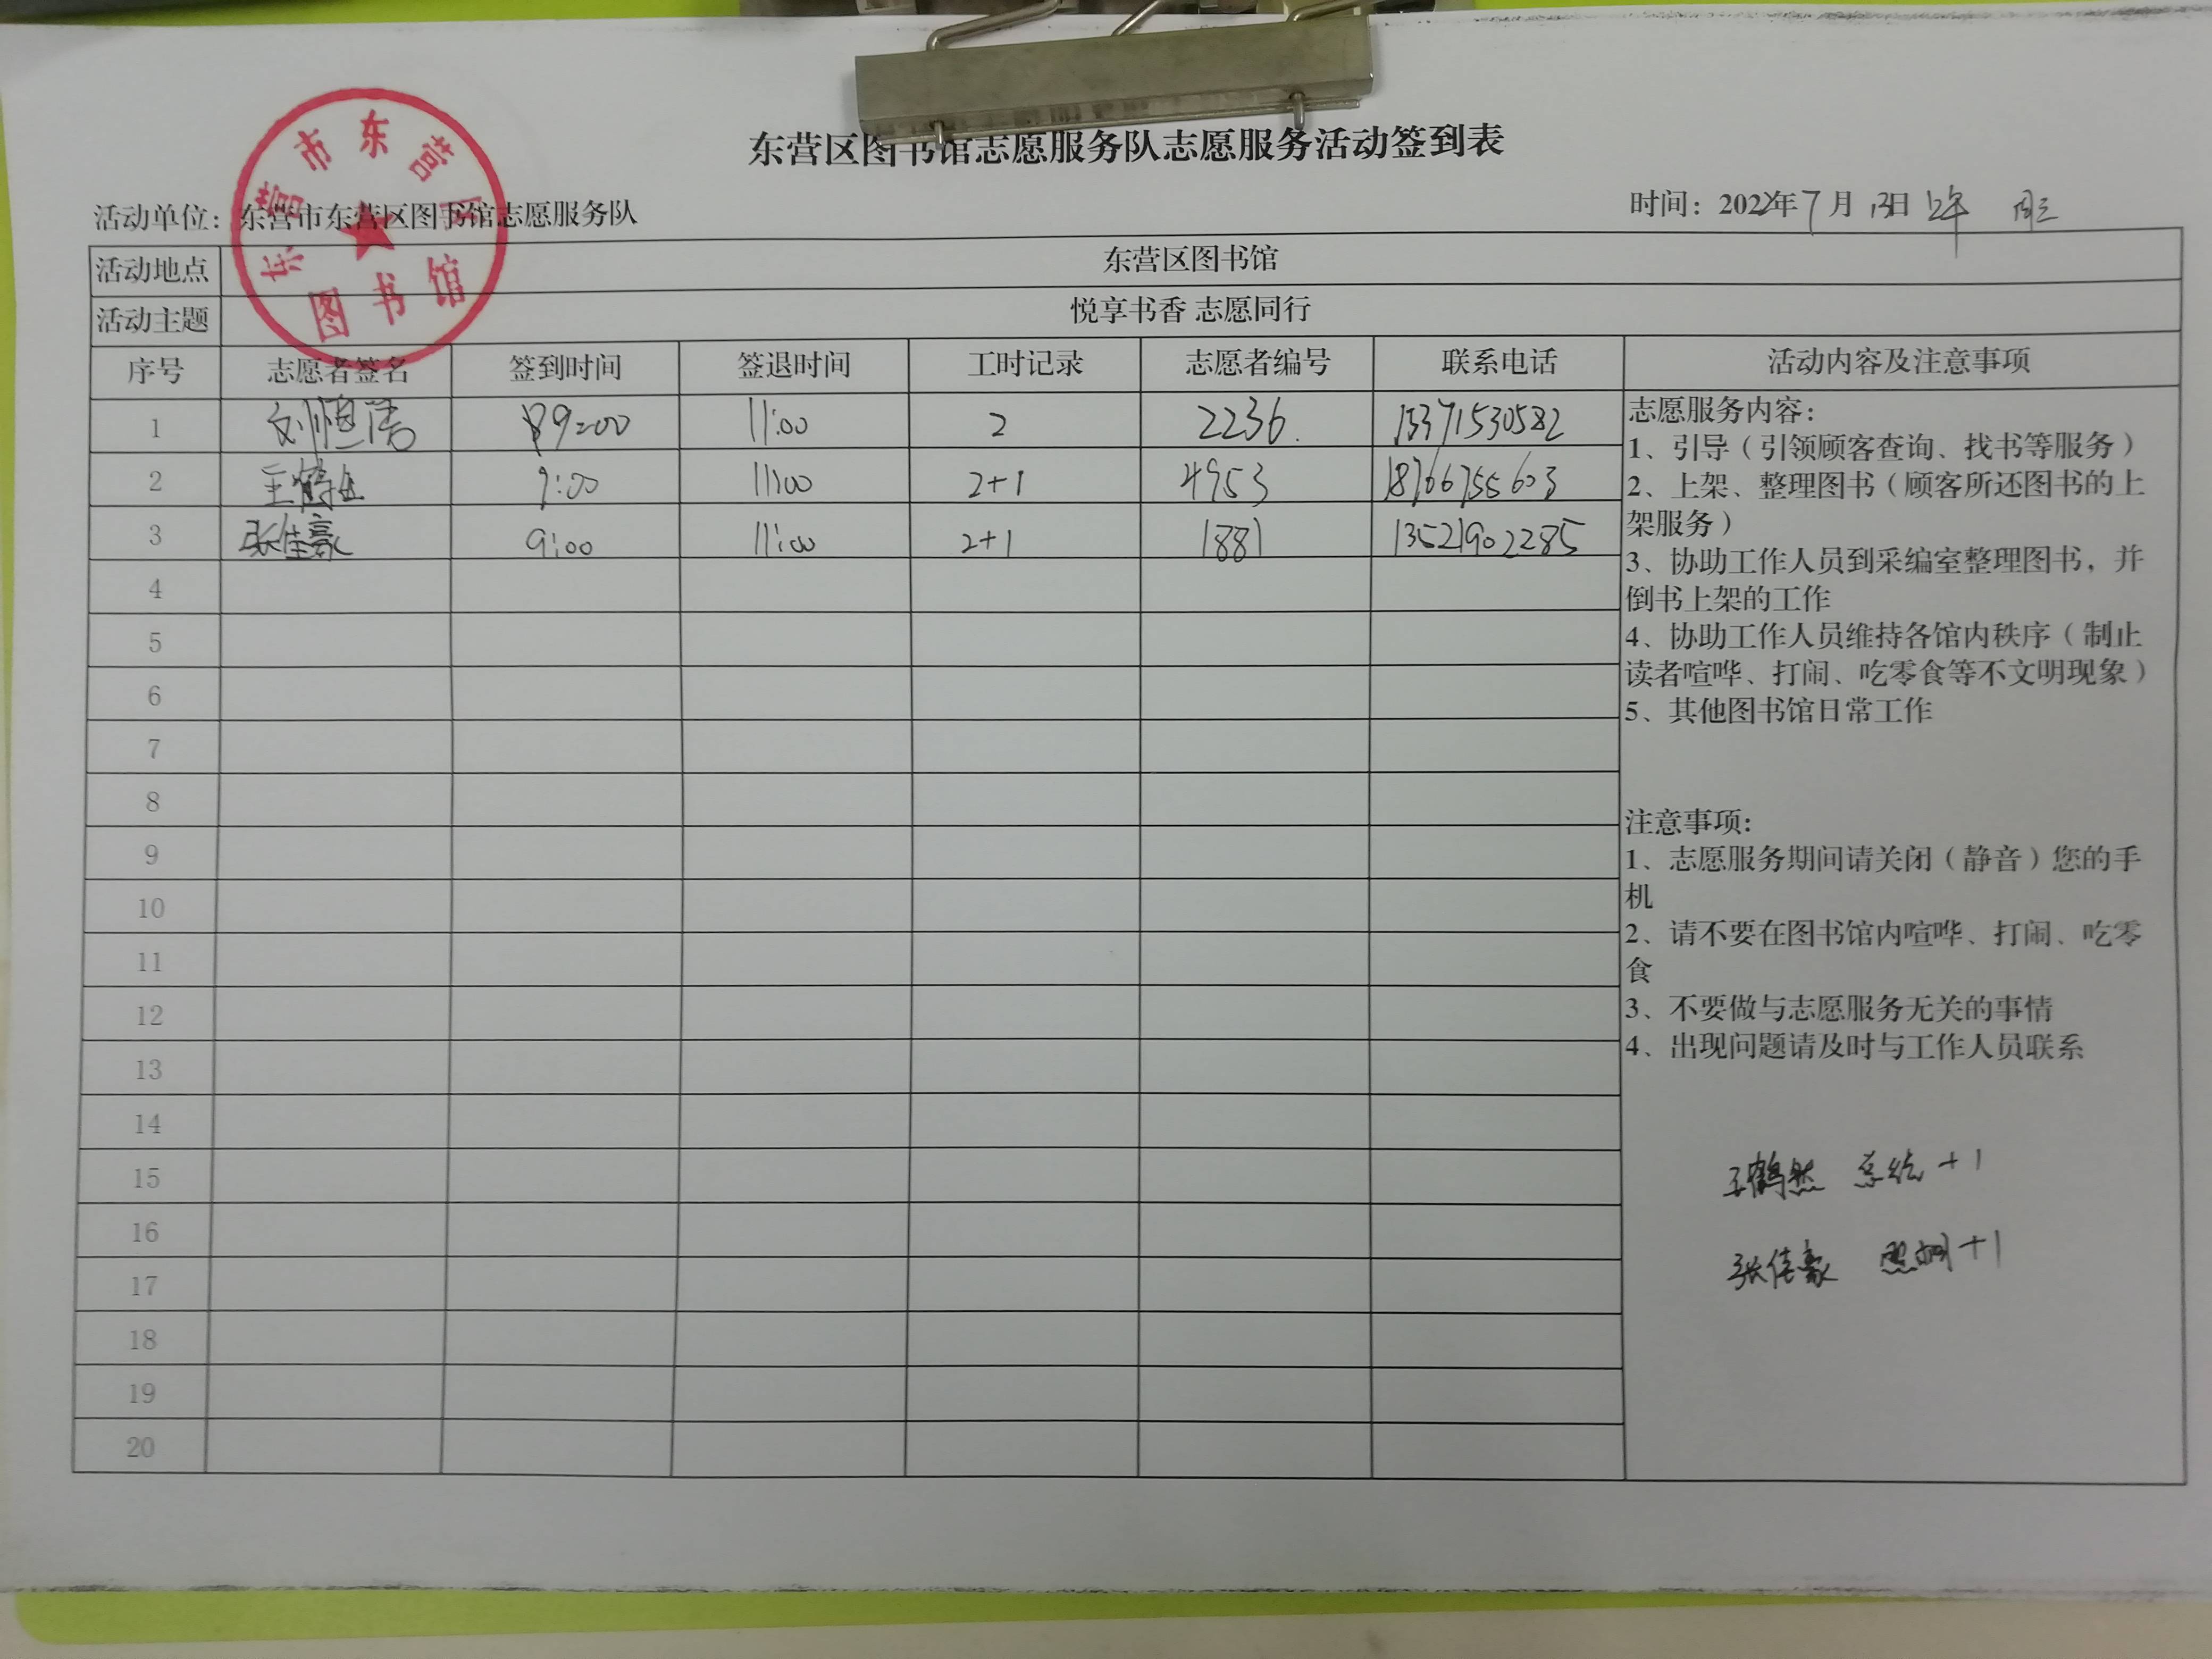 东营区图书馆志愿服务队志愿服务活动签到表
活动单位：东营市东营区图书馆志愿服务队 时间：2022年7月13日 上午 周三
东营市东营区
图书馆
活动地点 东营区图书馆
活动主题 悦享书香 志愿同行
序号 志愿者签名 签到时间 签退时间 工时记录 志愿者编号 联系电话 活动内容及注意事项
1 刘恒浩 9:00 11:00 2 2236 15371530582
2 王鹤 9:00 11:00 2+1 4953 18766755603
3 张佳豪 9:00 11:00 2+1 1881 13521902285
4
5
6
7
8
9
10
11
12
13
14
15
16
17
18
19
20
志愿服务内容：
1、引导（引领顾客查询、找书等服务）
2、上架、整理图书（顾客所还图书的上
架服务）
3、协助工作人员到采编室整理图书，并
倒书上架的工作
4、协助工作人员维持各馆内秩序（制止
读者喧哗、打闹、吃零食等不文明现象）
5、其他图书馆日常工作
注意事项：
1、志愿服务期间请关闭（静音）您的手
机
2、请不要在图书馆内喧哗、打闹、吃零
食
3、不要做与志愿服务无关的事情
4、出现问题请及时与工作人员联系
王鹤然 总结+1
张佳豪 照相+1